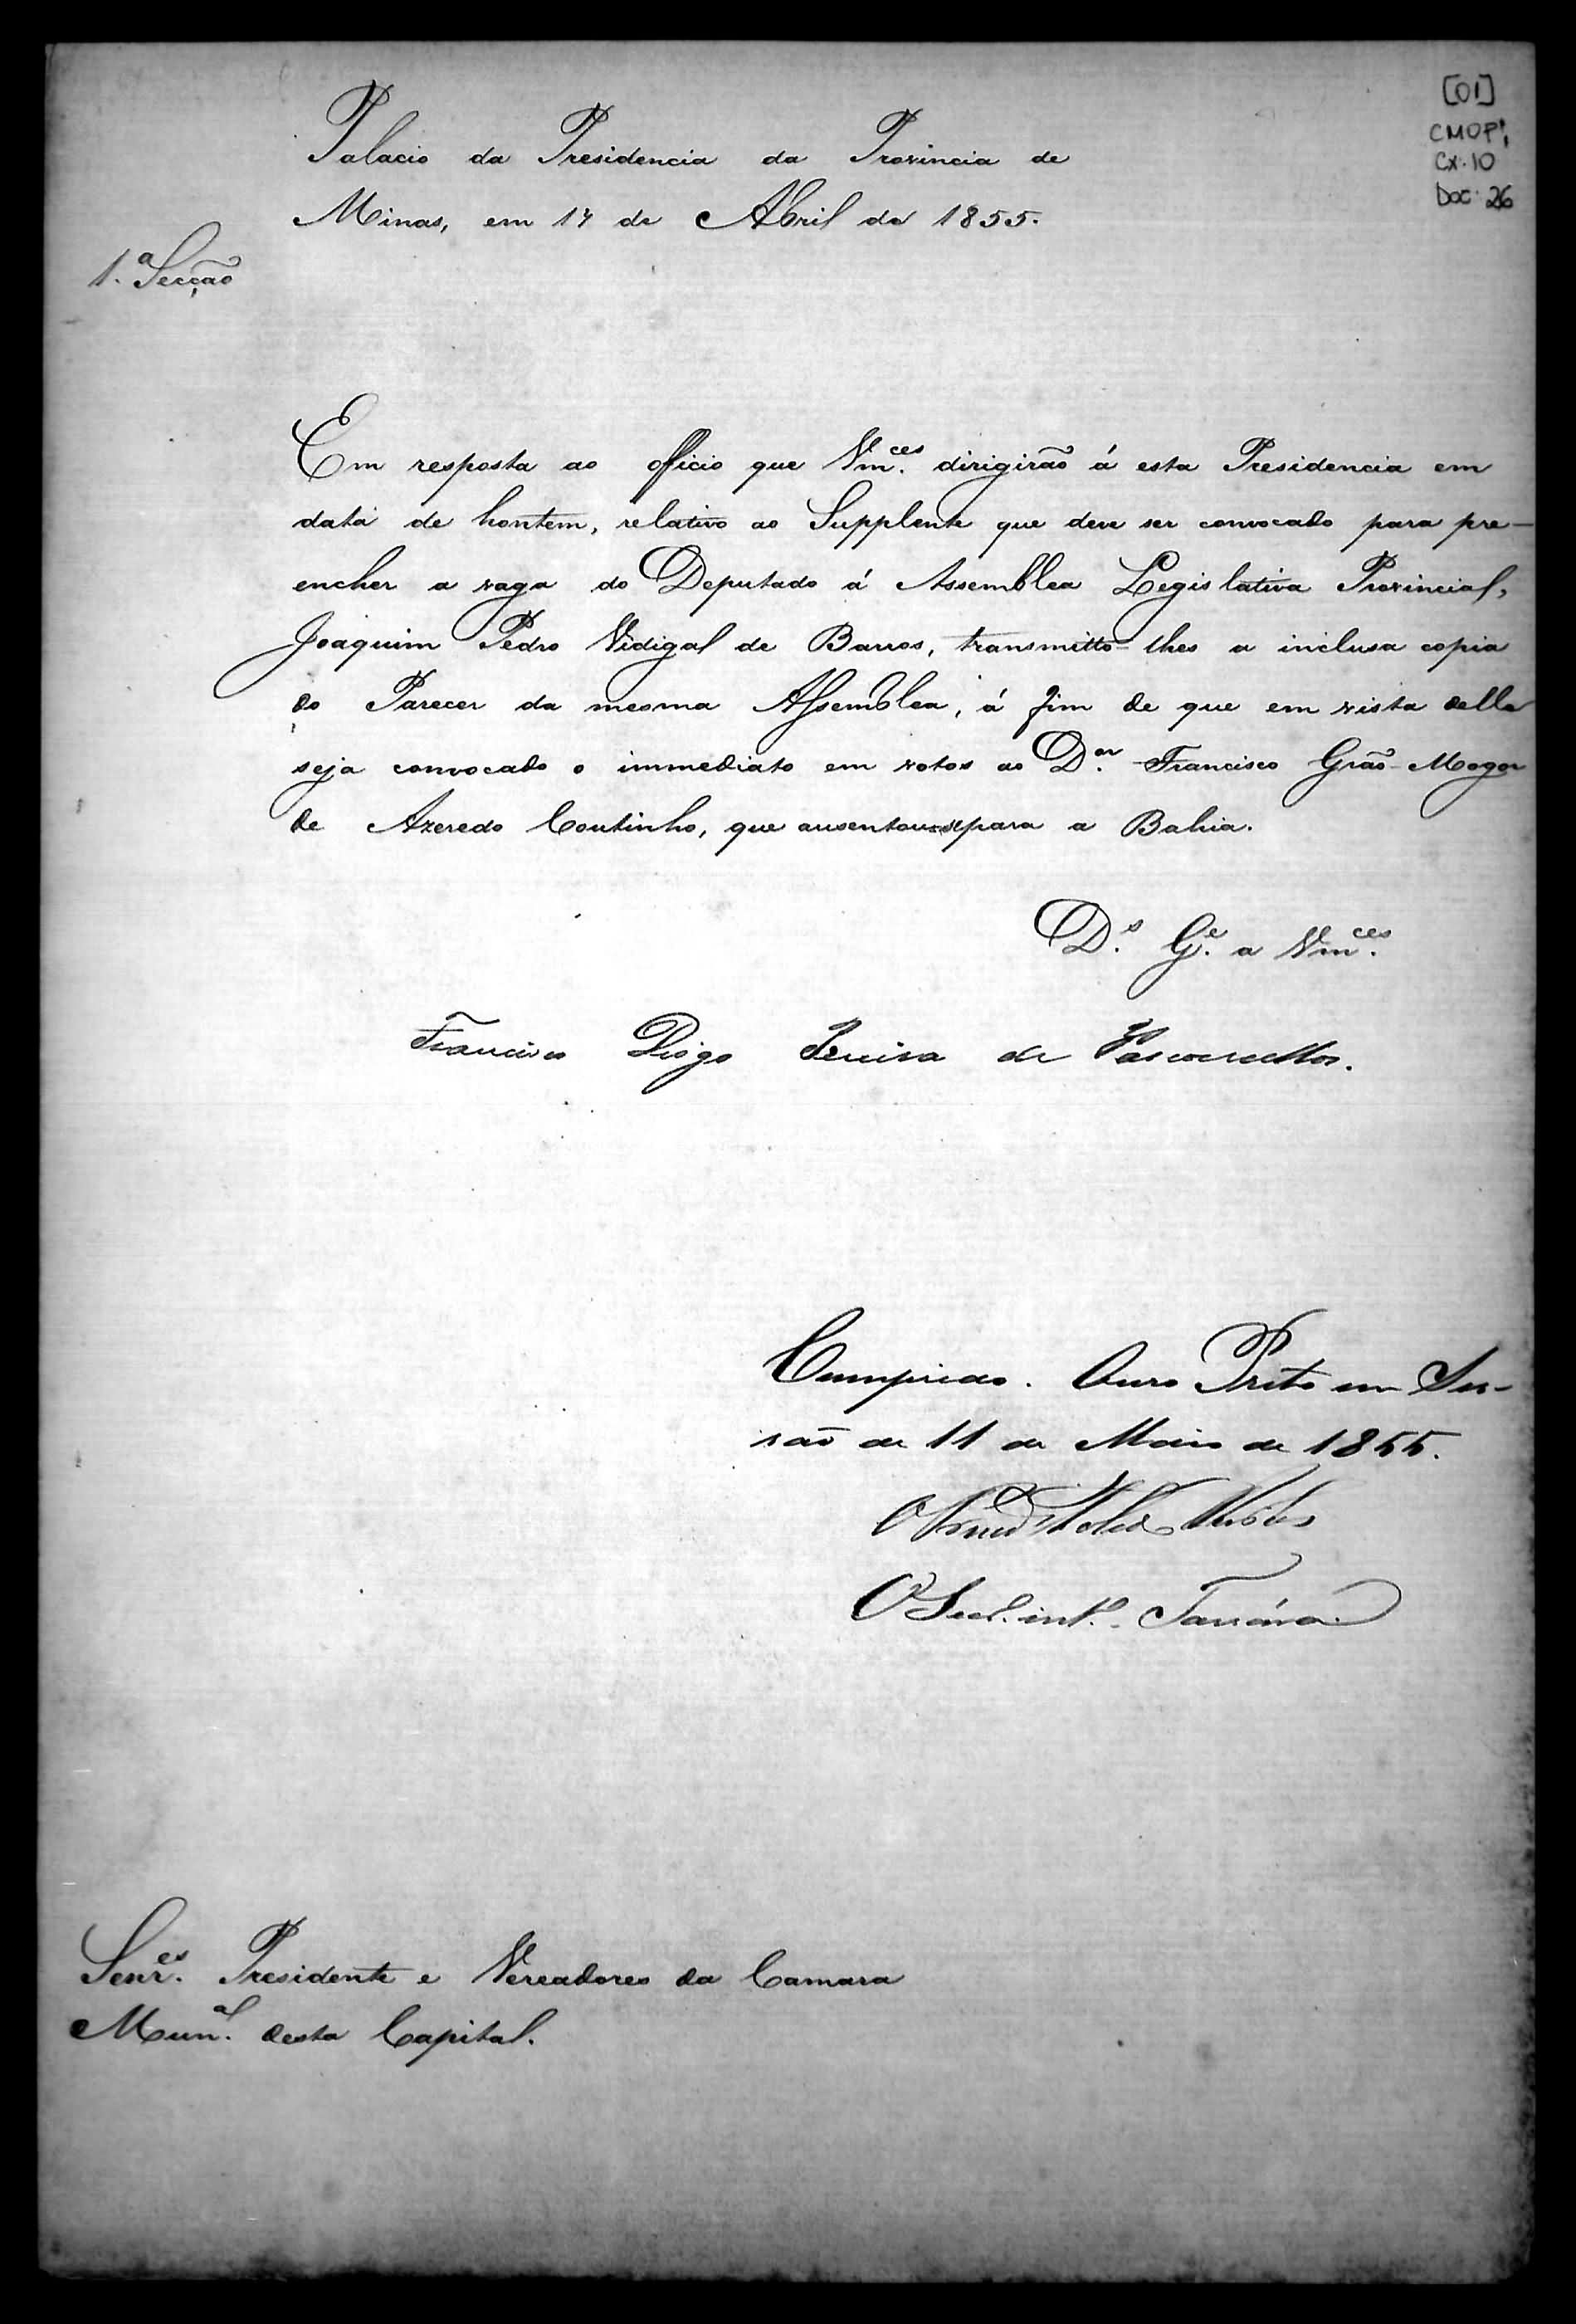 [01]
CMOP,
Cx. 10
Doc: 26
Palacio da Presidencia da Provincia de
Minas, em 17 de Abril de 1855.
1.ª Secção
Em resposta ao officio que Vm.ces dirigirão á esta Presidencia em
data de hontem, relativo ao Supplente que deve ser convocado para pre-
encher a vaga do Deputado á Assemblea Legislativa Provincial,
Joaquim Pedro Vidigal de Barros, transmitto-lhes a inclusa copia
do Parecer da mesma Assemblea, á fim de que em vista della
seja convocado o immediato em votos ao D.or Francisco Grão-Mogor
de Azeredo Coutinho, que ausentou-se para a Bahia.
D.s G.e a Vm.ces
Francisco Diogo Pereira de Vasconcellos.
Cumprido. Ouro Preto em Ses-
são de 11 de Maio de 1855.
O Secr. int.º
Senr.es Presidente e Vereadores da Camara
Mun.al desta Capital.